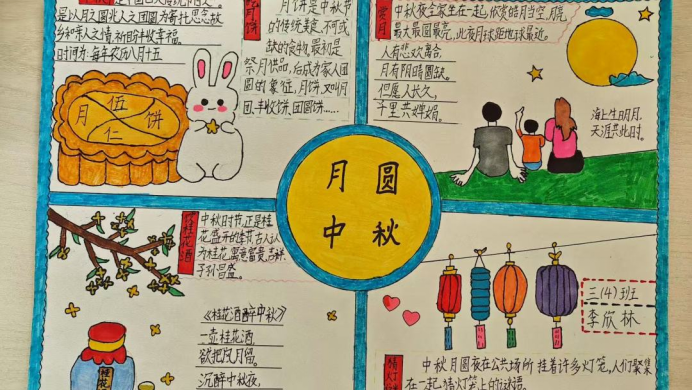 是以月之圆兆人之团圆为寄托思念故
乡和亲人之情,祈盼丰收幸福。
时间为:每年农历八月十五
月饼
伍仁
月饼是中秋节
的传统美食,不可或
缺的食物,最初是
祭月供品,后成为家人团
圆的象征,月饼,又叫月
团,丰收饼,团圆饼……
赏月
中秋夜全家坐在一起,欣赏皓月当空,月亮
最大最圆最亮,此夜月球距地球最近。
人有悲欢离合,
月有阴晴圆缺。
但愿人长久,
千里共婵娟。
海上生明月,
天涯共此时。
月圆
中秋
桂花酒
中秋时节,正是桂
花盛开的季节,古人认
为桂花,寓意富贵,吉祥,
子孙昌盛。
《桂花酒醉中秋》
一壶桂花酒,
欲把风月留。
沉醉中秋夜,
桂花
三(4)班
李欣林
猜灯
中秋月圆夜在公共场所挂着许多灯笼,人们聚集
在一起,猜灯笼上的谜语。